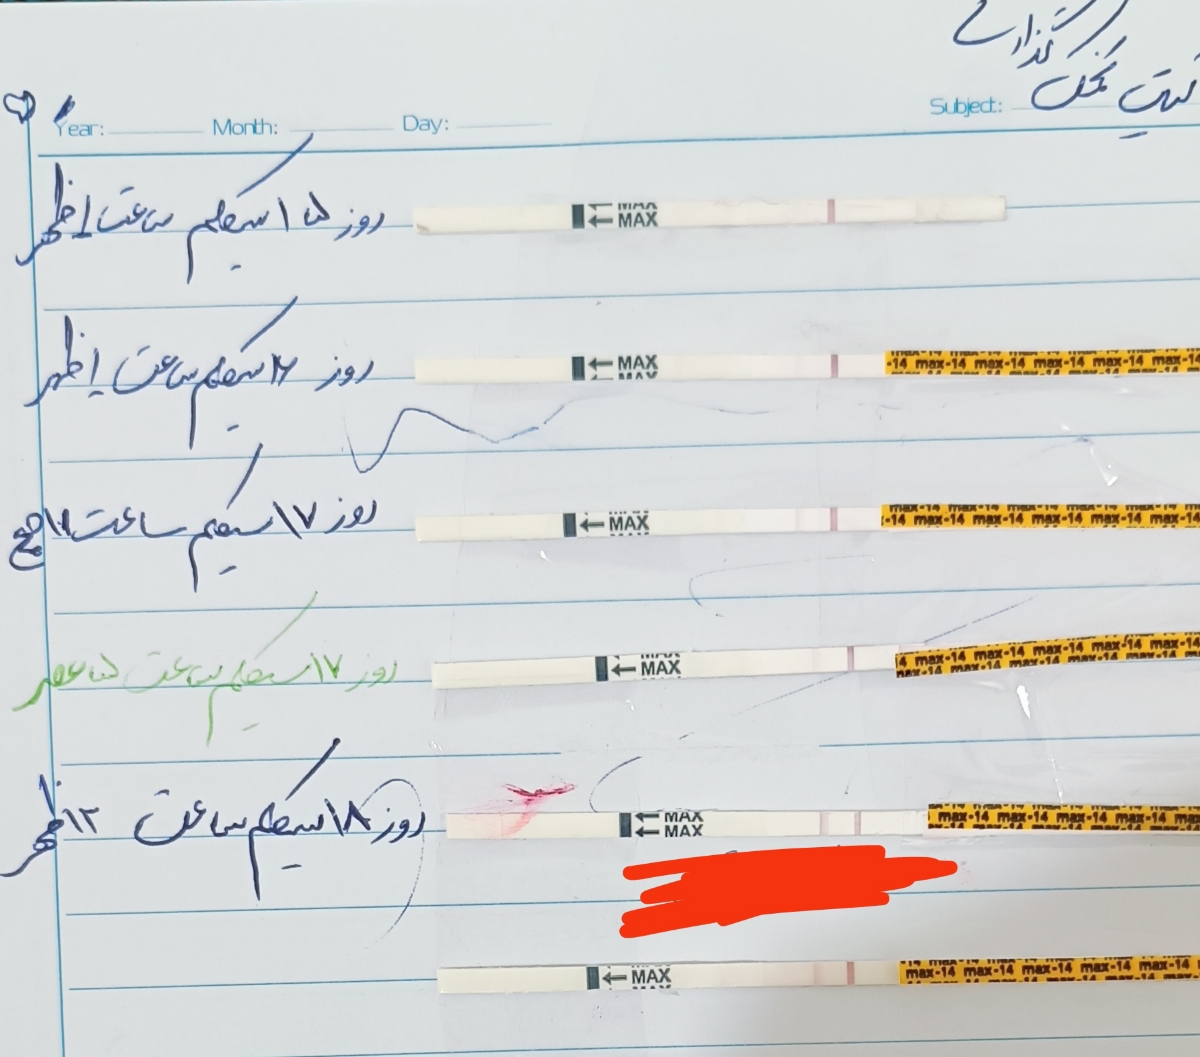 کیت تخمک گذاری
Year: Month: Day: Subject:
روز ۱۵ سیکلم ساعت ۱ ظهر
MAX
MAX
روز ۱۶ سیکلم ساعت ۱ ظهر
MAX
MAX
max-14 max-14 max-14 max-14
-14 max-14 max-14 max-14 max-14
روز ۱۷ سیکلم ساعت ۱۱ صبح
MAX
max-14 max-14 max-14 max-14
-14 max-14 max-14 max-14 max-14
روز ۱۷ سیکلم ساعت ۵ عصر
MAX
MAX
max-14 max-14 max-14 max-14
روز ۱۸ سیکلم ساعت ۱۲ ظهر
MAX
MAX
max-14 max-14 max-14 max-14
MAX
MAX
max-14 max-14 max-14 max-14 max-14